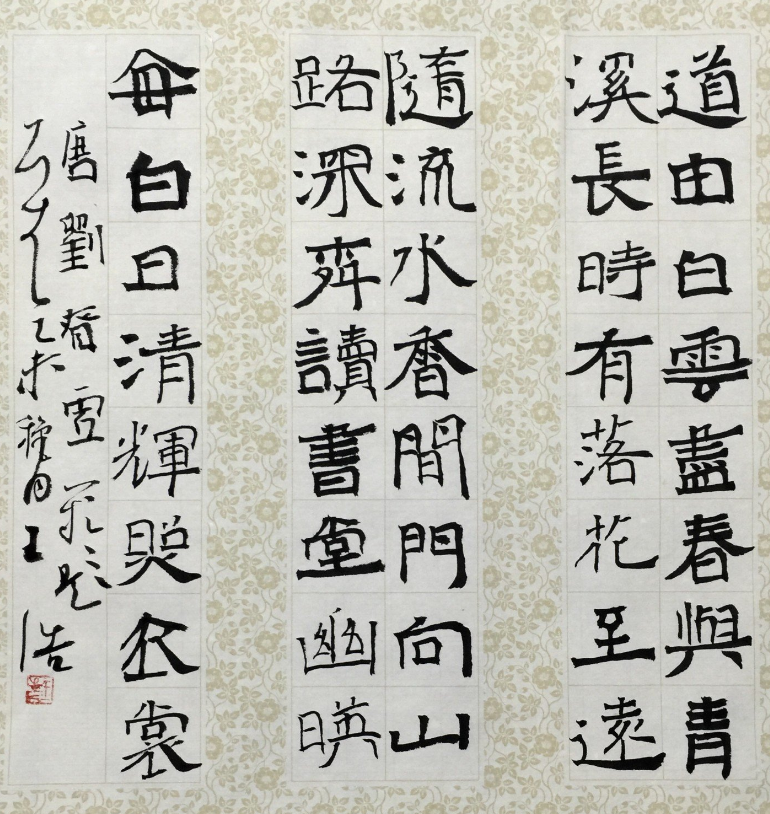 道由白雲盡春與青
溪長時有落花至遠
隨流水香間門向山
路深讀書堂幽映
每白日清輝照衣裳
唐劉昚虛闕題
乙未穐月王浩